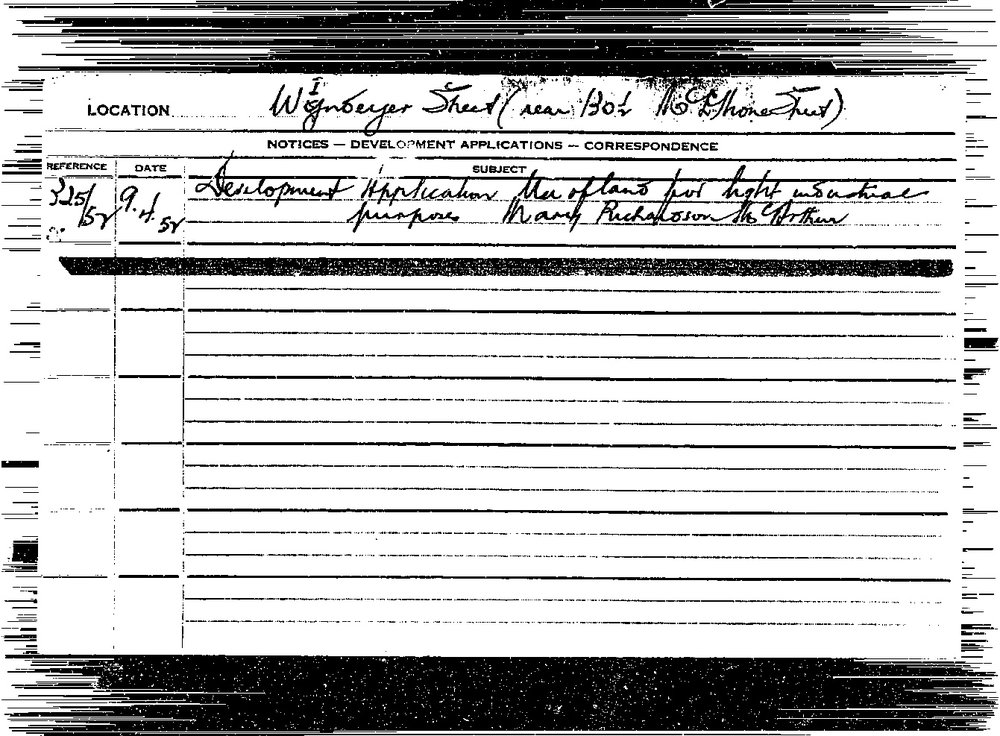 LOCATION Wignberger Street (rear 130½ McElhone Street)
NOTICES — DEVELOPMENT APPLICATIONS — CORRESPONDENCE
REFERENCE DATE SUBJECT
325/52 9.4.52 Development Application Use of land for light industrial
purposes Mary Richardson McArthur